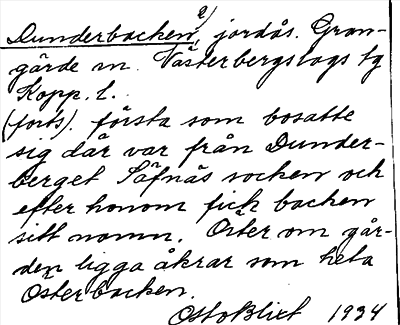 2)
Dunderbacken, jordås. Gran-
gärde sn. Västerbergslags tg
Kopp. l.
(forts). första som bosatte
sig där var från Dunder-
berget Säfnäs socken och
efter honom fick backen
sitt namn. Öster om går-
den ligga åkrar som heta
Österbacken.
Otto Blixt 1934